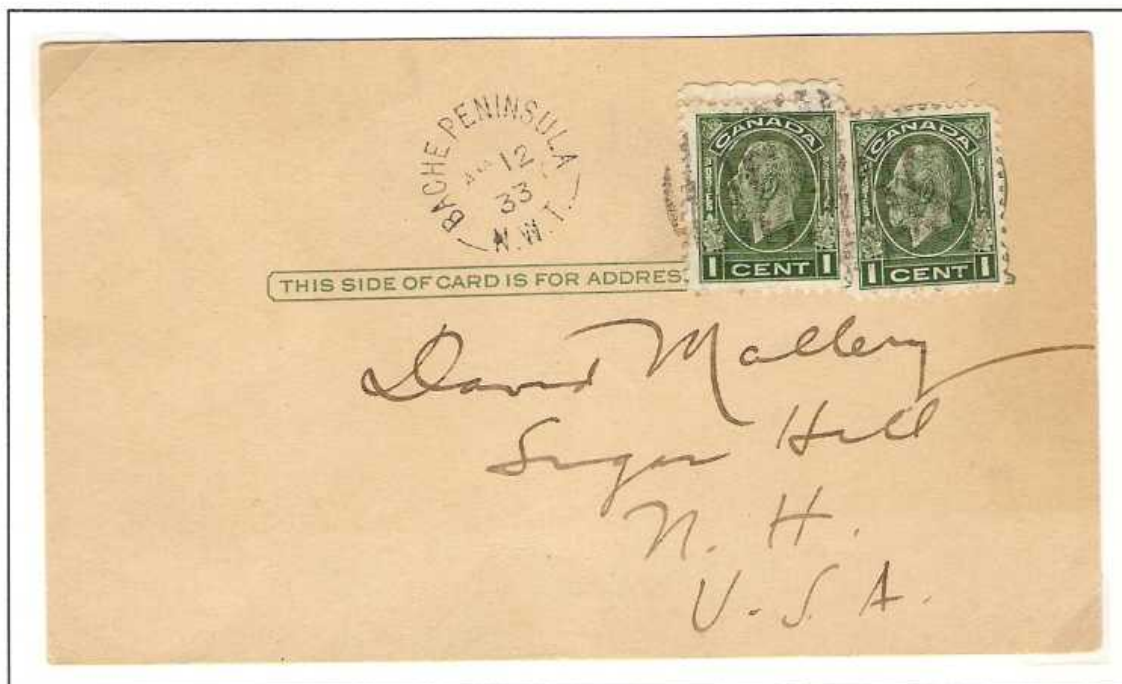 BACHE PENINSULA
12
33
N.W.T.
CANADA
1 CENT 1
CANADA
1 CENT 1
THIS SIDE OF CARD IS FOR ADDRES
David Mallery
Sugar Hill
N. H.
U.S.A.